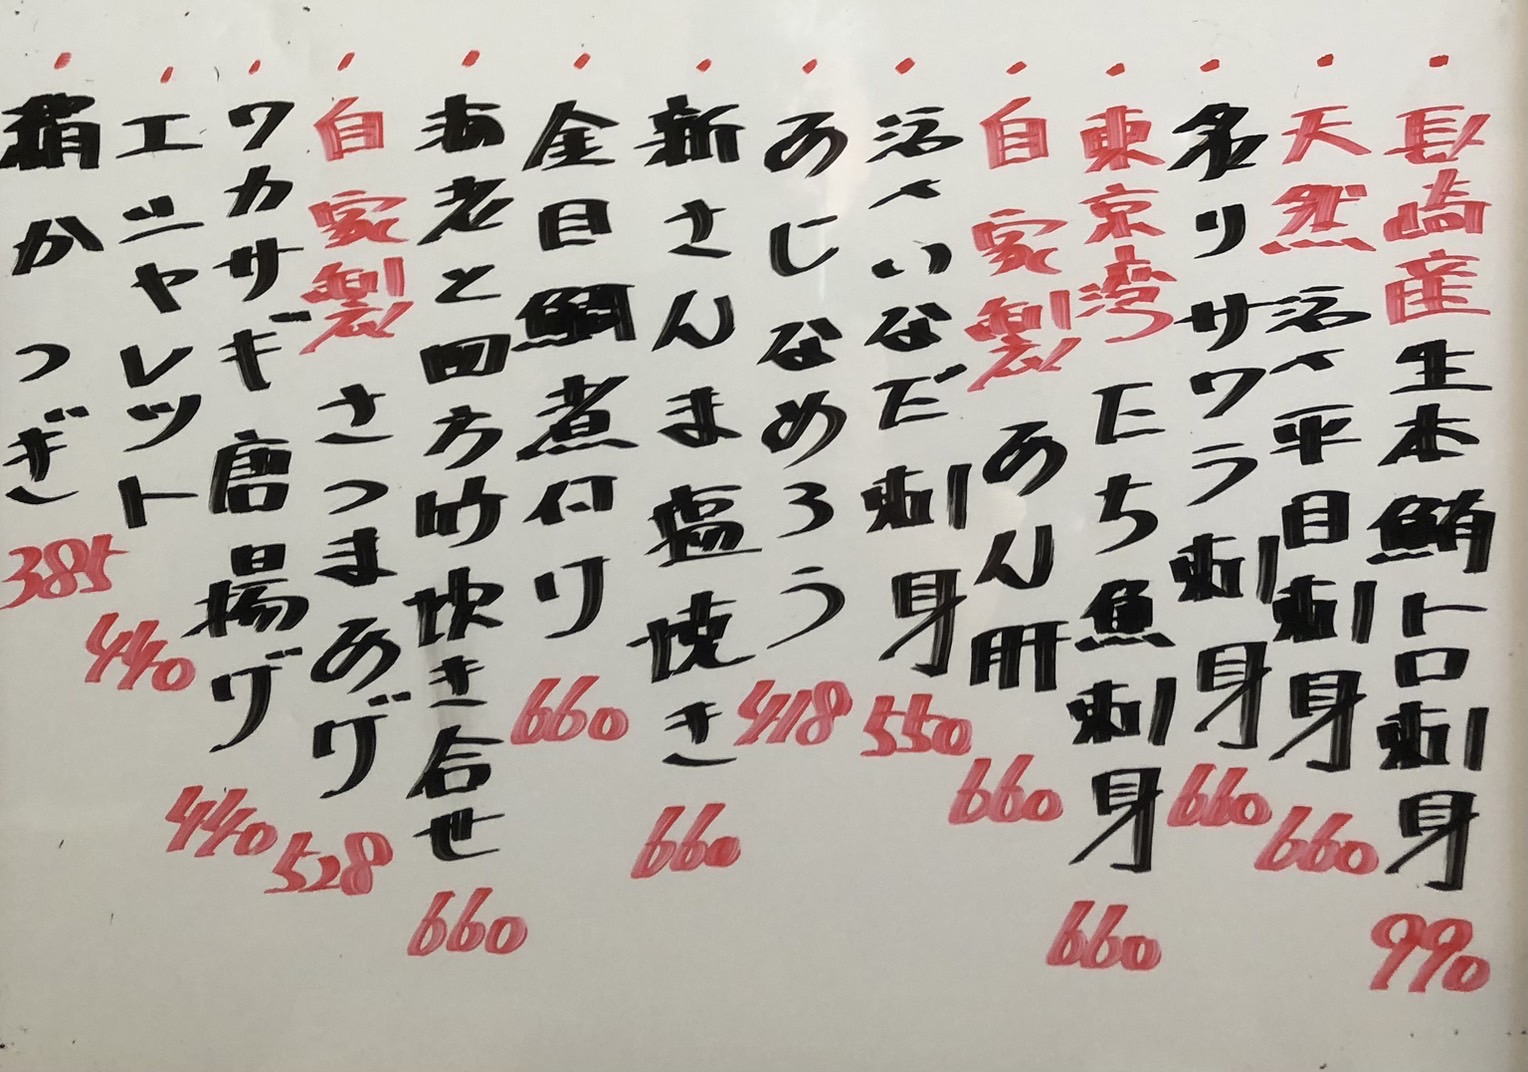 長崎産 生本鮪トロ刺身 990
天然 活〆平目刺身 660
炙りサワラ刺身 660
東京湾 たち魚刺身 660
自家製 あん肝 660
活〆いなだ刺身 550
あじなめろう 418
新さんま塩焼き 660
金目鯛煮付け 660
海老と四方竹炊き合せ 660
自家製 さつまあげ 528
ワカサギ唐揚げ 440
エシャレット 440
絹かつぎ 385